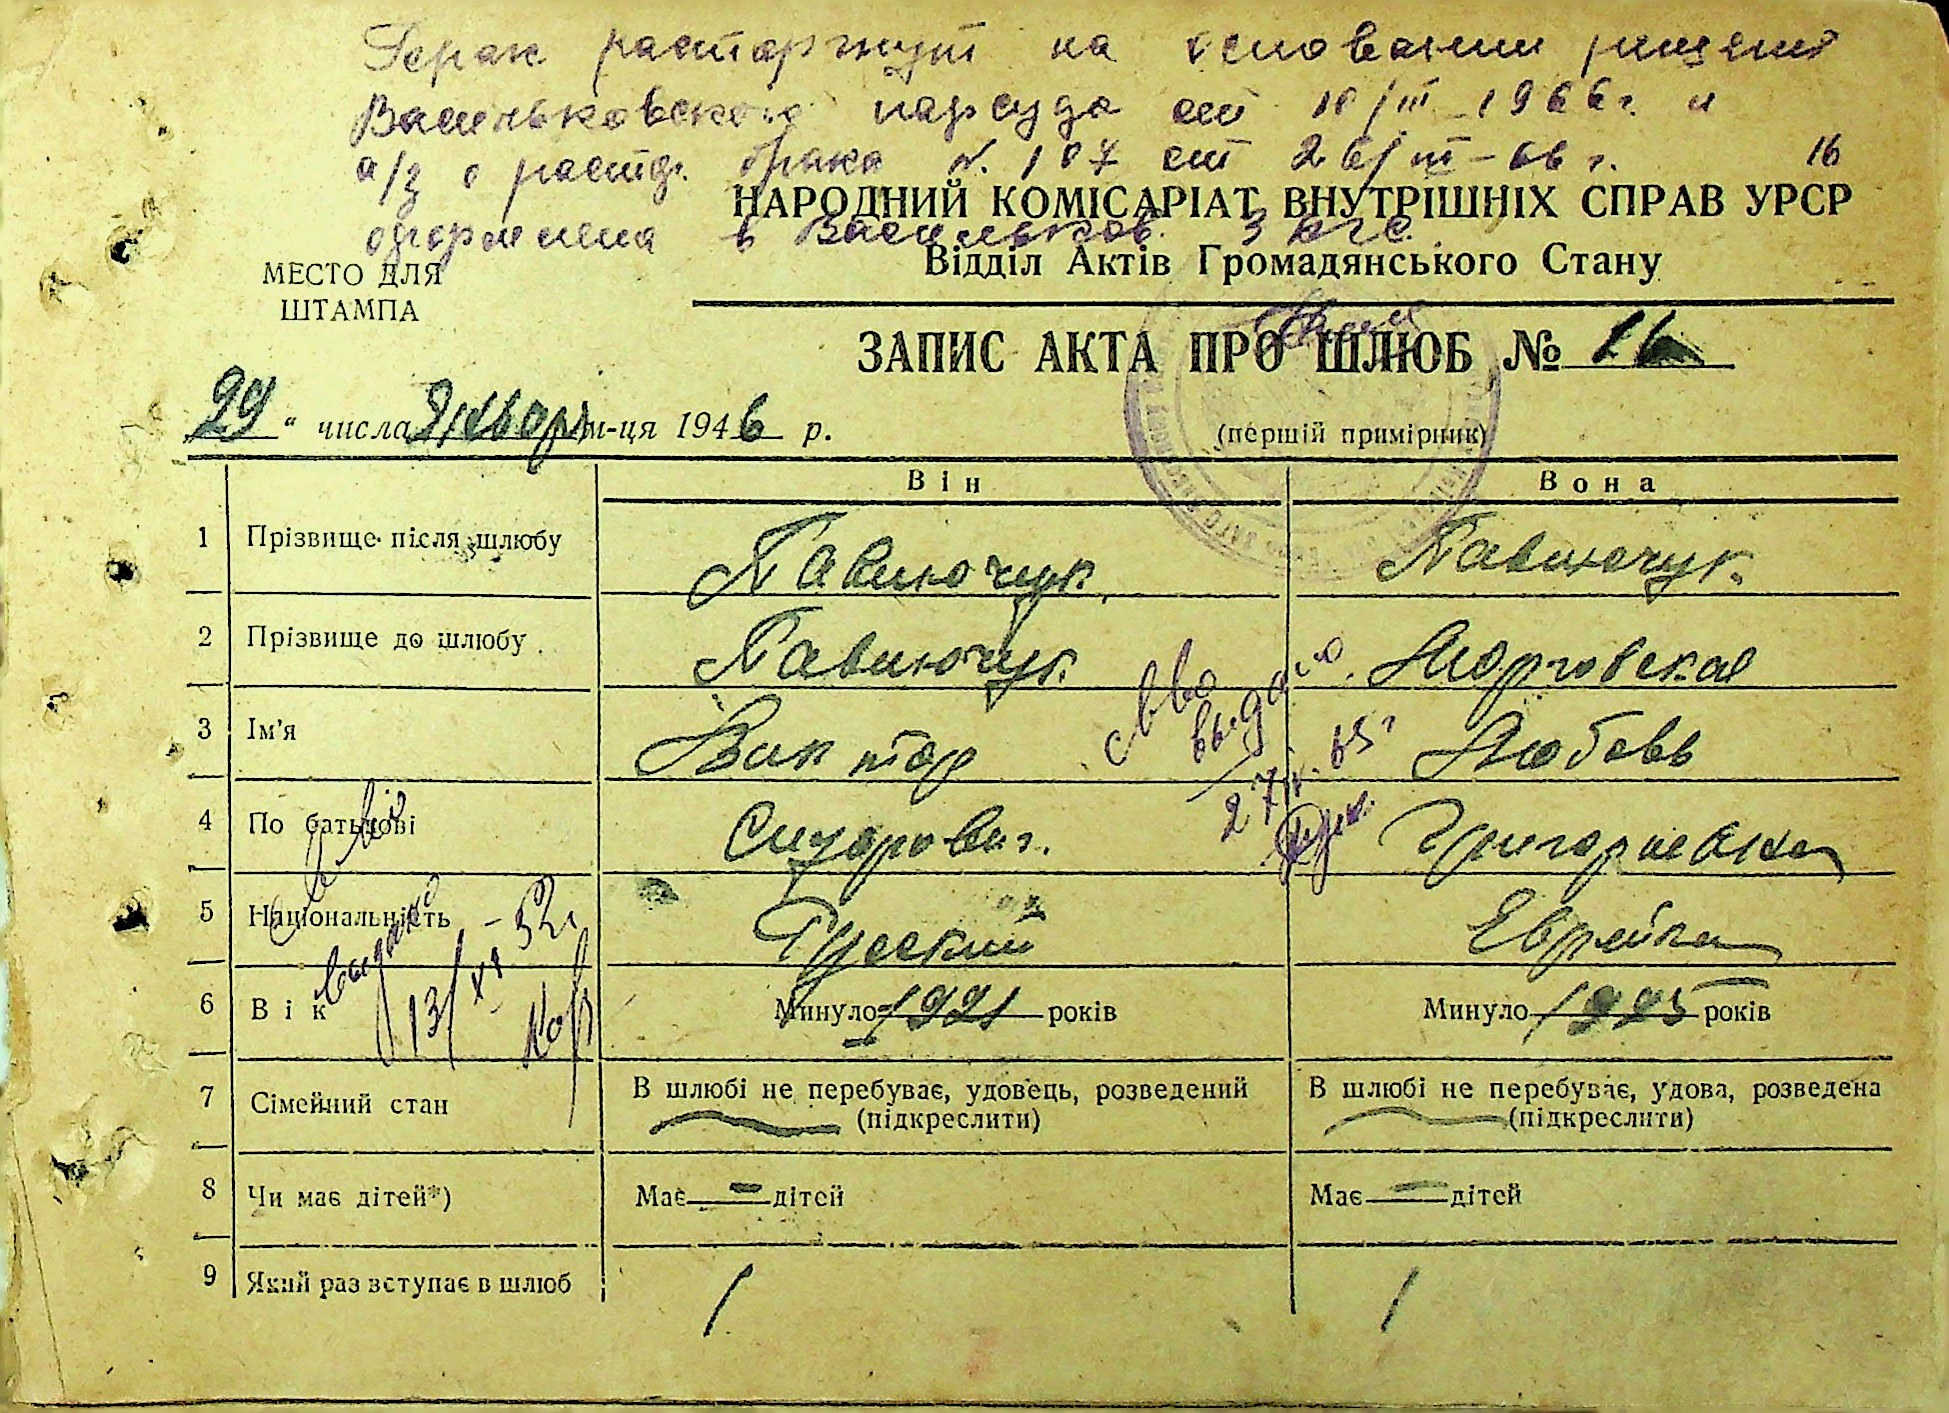 Брак расторгнут на основании решения
Васильковского нарсуда от 10/III-1966г. и
а/з о расторж. брака N. 107 от 26/III-66 г.
16
НАРОДНИЙ КОМІСАРІАТ ВНУТРІШНІХ СПРАВ УРСР
оформлена в Васильков.
Відділ Актів Громадянського Стану
МЕСТО ДЛЯ
ШТАМПА
ЗАПИС АКТА ПРО ШЛЮБ № 16
29 " числа Января м-ця 1946 р.
(першій примірник)
Він Вона
1 Прізвище після шлюбу Павлючук Павлючук
2 Прізвище до шлюбу Павлючук
3 Ім'я Виктор Любовь
4 По батькові Григорьевна
5 Національність Руский Еврейка
6 Вік Минуло 1921 років Минуло 1925 років
7 Сімейний стан В шлюбі не перебуває, удовець, розведений (підкреслити) В шлюбі не перебуває, удова, розведена (підкреслити)
8 Чи має дітей*) Має — дітей Має — дітей
9 Який раз вступає в шлюб 1 1
с в-во
выдано
13/XI-52г.
с в-во
выдано